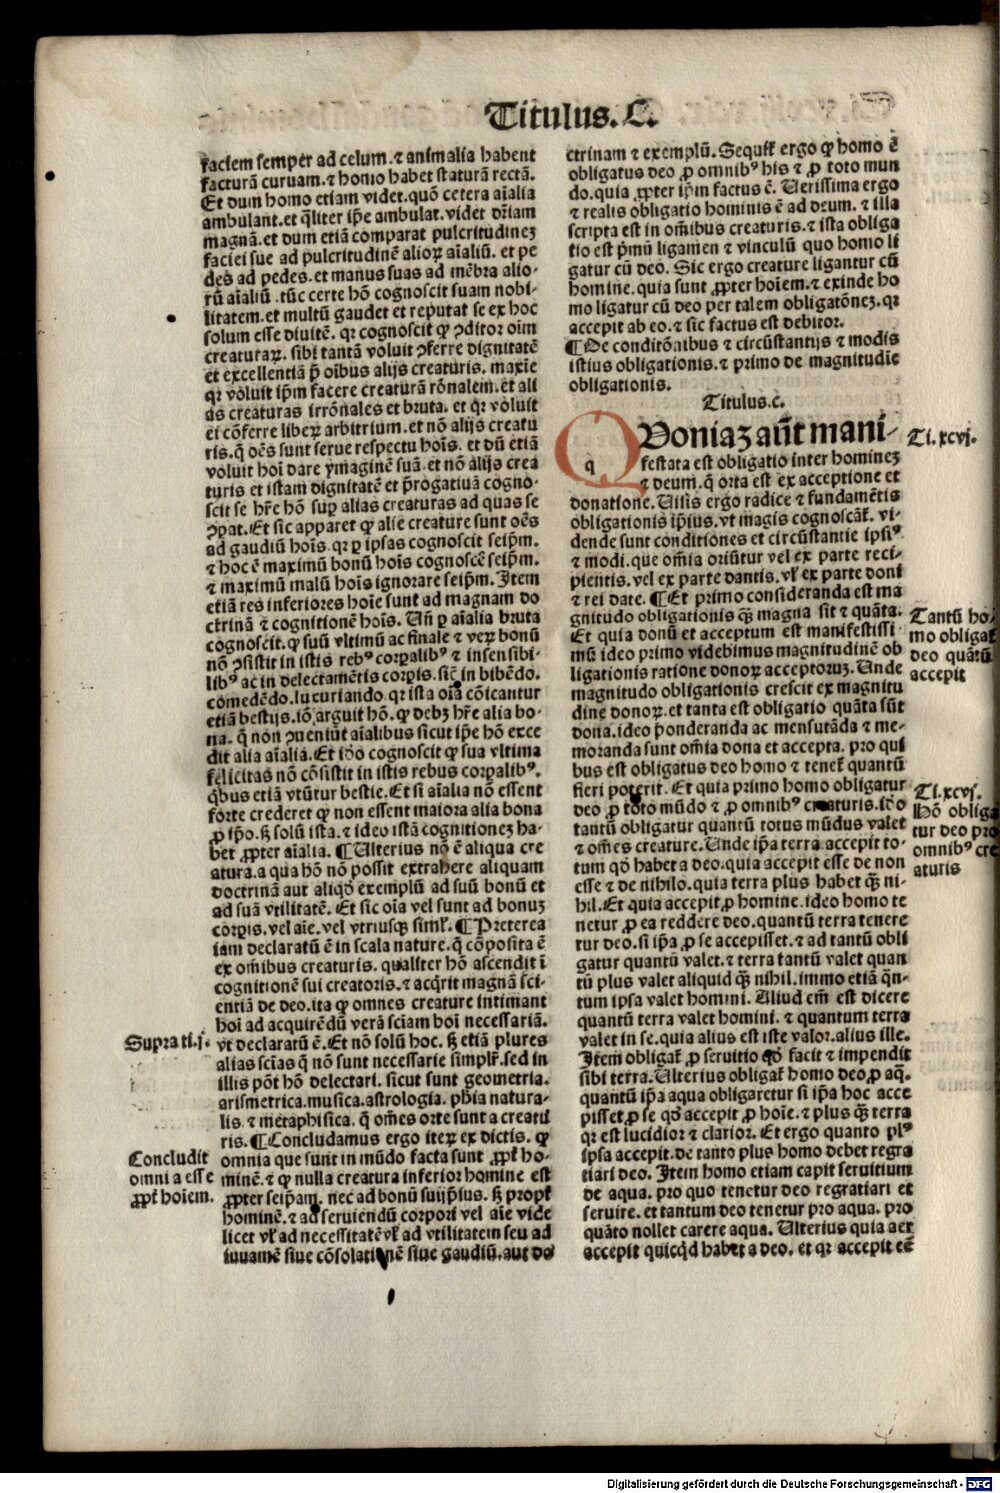 Titulus.C.
faciem semper ad celum.⁊ animalia habent
facturā curuam.⁊ homo habet staturā rectā.
Et dum homo etiam videt.quō cetera aīalia
ambulant.et q̄liter ip̄e ambulat.videt dr̄iam
magnā.et dum etiā comparat pulcritudineꝫ
faciei sue ad pulcritudinē alioꝝ aīaliū. et pe
des ad pedes.et manus suas ad mēbra alio-
rū aīaliū .tūc certe hō cognoscit suam nobi-
litatem.et multū gaudet et reputat se ex hoc
solum esse diuitē. qꝛ cognoscit ꝙ ꝯditor oīm
creaturaꝝ. sibi tantā voluit ꝯferre dignitatē
et excellentiā p̄ oībus alijs creaturis. maxīe
qꝛ voluit ip̄m facere creaturā rōnalem.et ali
as creaturas irrōnales et bruta. et qꝛ voluit
ei cōferre liberꝝ arbitrium.et nō alijs creatu
ris.q̄ oēs sunt serue respectu hoīs. et dū etiā
voluit hoī dare ymaginē suā.et nō alijs crea
turis et istam dignitatē et p̄rogatiuā cogno-
scit se hr̄e hō suꝑ alias creaturas ad quas se
ꝯꝑat.Et sic apparet ꝙ alie creature sunt oēs
ad gaudiū hoīs.qꝛ ꝑ ipsas cognoscit seip̄m.
⁊ hoc ē maximū bonū hoīs cognoscē seip̄m.
⁊ maximū malū hoīs ignorare seip̄m. Item
etiā res inferiores hoīe sunt ad magnam do
ctrinā ⁊ cognitionē hoīs. Un̄ ꝑ aīalia bruta
cognoscit.ꝙ suū vltimū ac finale ⁊ verꝝ bonū
nō ꝯsistit in istis rebꝰ corꝑalibꝰ ⁊ insensibi-
libꝰ ac in delectamētis corꝑis. sic̄ in bibēdo.
comedēdo.luxuriando.qꝛ ista oīa cōicantur
etiā bestijs.iō arguit hō. ꝙ debꝫ hr̄e alia bo-
na. q̄ non ꝯueniūt aīalibus sicut ip̄e hō exce
dit alia aīalia.Et iō cognoscit ꝙ sua vltima
felicitas nō cōsistit in istis rebus corꝑalibꝰ.
q̄bus etiā vtūtur bestie.Et si aīalia nō essent
forte crederet ꝙ non essent maiora alia bona
ꝓ ip̄o.sꝫ solū ista.⁊ ideo istā cognitioneꝫ ha-
bet ꝓpter aīalia. ¶Ulterius nō ē aliqua cre
atura.a qua hō nō possit extrahere aliquam
doctrinā aut aliqđ exemplū ad suū bonū et
ad suā vtilitatē. Et sic oīa vel sunt ad bonuꝫ
corꝑis.vel aīe.vel vtriusqꝫ siml̄. ¶Preterea
iam declaratū ē in scala nature.q̄ cōposita ē
ex om̄ibus creaturis. qualiter hō ascendit ī
cognitionē sui creatoris.⁊ acq̄rit magnā sci-
entiā de deo.ita ꝙ omnes creature intimant
hoī ad acquirēdū verā sciam hoī necessariā.
Supra ti.j. vt declaratū ē.Et nō solū hoc. sꝫ etiā plures
alias scīas q̄ nō sunt necessarie simplr̄.sed in
illis pōt hō delectari. sicut sunt geometria.
arismetrica.musica.astrologia. phīa natura-
lis.⁊ metaphisica. q̄ om̄es orte sunt a creatu
ris. ¶Concludamus ergo iterꝝ ex dictis. ꝙ
Concludit omnia que sunt in mūdo facta sunt ꝓpt̄ ho-
omnia esse minē.⁊ ꝙ nulla creatura inferior homine est
ꝓpt̄ hoīem. ꝓpter seip̄am. nec ad bonū suijp̄ius. sꝫ propt̄
hominē.⁊ ad seruiendū corpori vel aīe vide
licet vl̄ ad necessitatē vl̄ ad vtilitatem seu ad
iuuamē siue cōsolationē siue gaudiū.aut do
ctrinam ⁊ exemplū. Sequit̄ ergo ꝙ homo ē
obligatus deo ꝓ omnibꝰ his ⁊ ꝓ toto mun
do.quia ꝓpter ip̄m factus ē. Uerissima ergo
⁊ realis obligatio hominis ē ad deum. ⁊ illa
scripta est in om̄ibus creaturis.⁊ ista obliga
tio est p̄mū ligamen ⁊ vinculū quo homo li
gatur cū deo. Sic ergo creature ligantur cū
homine. quia sunt ꝓpter hoīem.⁊ exinde ho
mo ligatur cū deo per talem obligatōneꝫ.qꝛ
accepit ab eo.⁊ sic factus est debitor.
¶De conditōnibus ⁊ circūstantijs ⁊ modis
istius obligationis.⁊ primo de magnitudīe
obligationis.
Titulus.c.
QUoniaꝫ aūt mani- Ti.xcvj.
festata est obligatio inter homineꝫ
⁊ deum.q̄ orta est ex acceptione et
donatione. Uisis ergo radice ⁊ fundamētis
obligationis ip̄ius.vt magis cognoscāt̄. vi-
dende sunt conditiones et circūstantie ipsiꝰ
⁊ modi.que om̄ia oriūtur vel ex parte reci-
pientis.vel ex parte dantis.vl̄ ex parte doni
⁊ rei date. ¶Et primo consideranda est ma
gnitudo obligationis q̄ꝫ magna sit ⁊ quāta. Tantū ho-
Et quia donū et acceptum est manifestissi- mo obligat̄
mū ideo primo videbimus magnitudinē ob deo quātū
ligationis ratione donoꝝ acceptoruꝫ.Unde accepit
magnitudo obligationis crescit ex magnitu
dine donoꝝ.et tanta est obligatio quāta sūt
dona.ideo ponderanda ac mensurāda ⁊ me-
moranda sunt om̄ia dona et accepta. pro qui
bus est obligatus deo homo ⁊ tenet̄ quantū
fieri poterit. Et quia primo homo obligatur Ti.xcvj.
deo ꝓ toto mūdo ⁊ ꝓ omnibꝰ creaturis.iō Hō obliga
tantū obligatur quantū totus mūdus valet tur deo pro
⁊ om̄es creature.Unde ip̄a terra accepit to- omnibꝰ cre
tum qđ habet a deo.quia accepit esse de non aturis
esse ⁊ de nihilo.quia terra plus habet q̄ꝫ ni-
hil.Et quia accepit ꝓ homine.ideo homo te
netur ꝓ ea reddere deo.quantū terra tenere
tur deo.si ip̄a ꝓ se accepisset.⁊ ad tantū obli
gatur quantū valet.⁊ terra tantū valet quan
tū plus valet aliquid q̄ꝫ nihil.immo etiā q̄n-
tum ipsa valet homini. Aliud em̄ est dicere
quantū terra valet homini. ⁊ quantum terra
valet in se.quia alius est iste valor.alius ille.
Item obligat̄ ꝓ seruitio qđ facit ⁊ impendit
sibi terra.Ulterius obligat̄ homo deo ꝓ aq̄.
quantū ip̄a aqua obligaretur si ip̄a hoc acce
pisset ꝓ se qđ accepit ꝓ hoīe.⁊ plus q̄ꝫ terra
qꝛ est lucidior ⁊ clarior. Et ergo quanto plꝰ
ipsa accepit.de tanto plus homo debet regra
tiari deo. Item homo etiam capit seruitium
de aqua. pro quo tenetur deo regratiari et
seruire. et tantum deo tenetur pro aqua. pro
quāto nollet carere aqua. Ulterius quia aer
accepit quicq̄d habet a deo. et qꝛ accepit eē
Digitalisierung gefördert durch die Deutsche Forschungsgemeinschaft - DFG